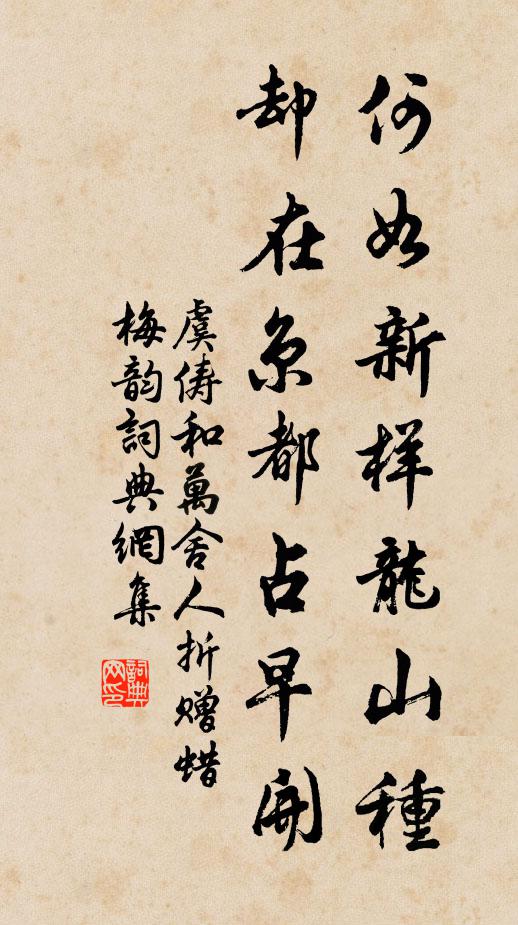 何如新样龍山種
却在京都占早開
虞儔和萬舍人折赠蜡
梅韵詞典網集
詞典
网印